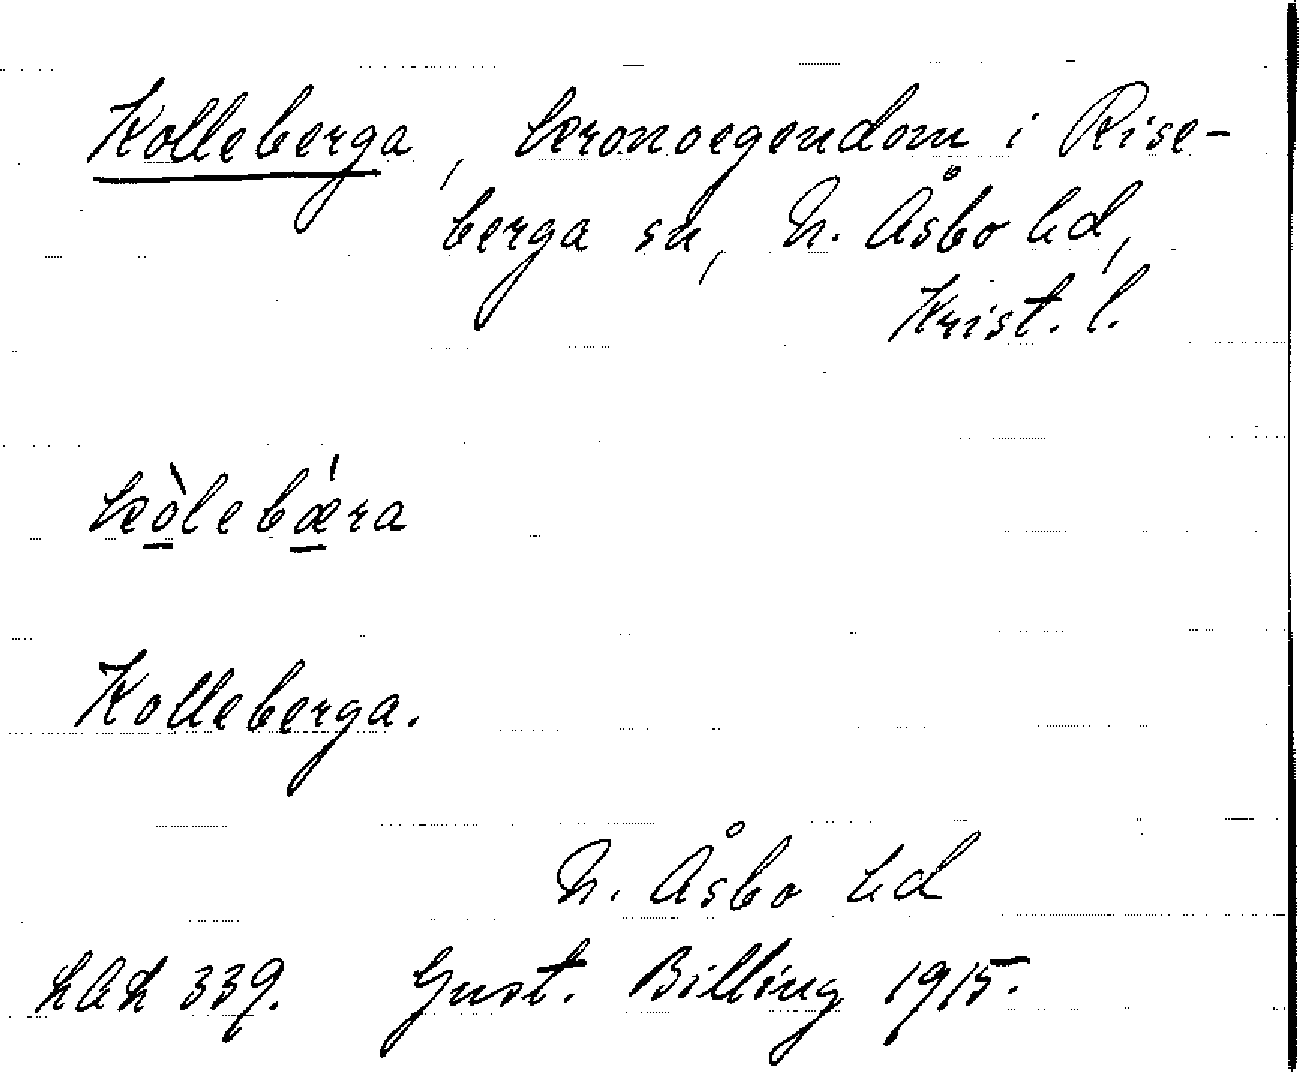 Kolleberga, kronoegendom i Rise-
berga sn, N. Åsbo hd,
Krist. l.
kòlebǽra
Kolleberga.
N. Åsbo hd
LAL 339. Gust. Billing 1915.